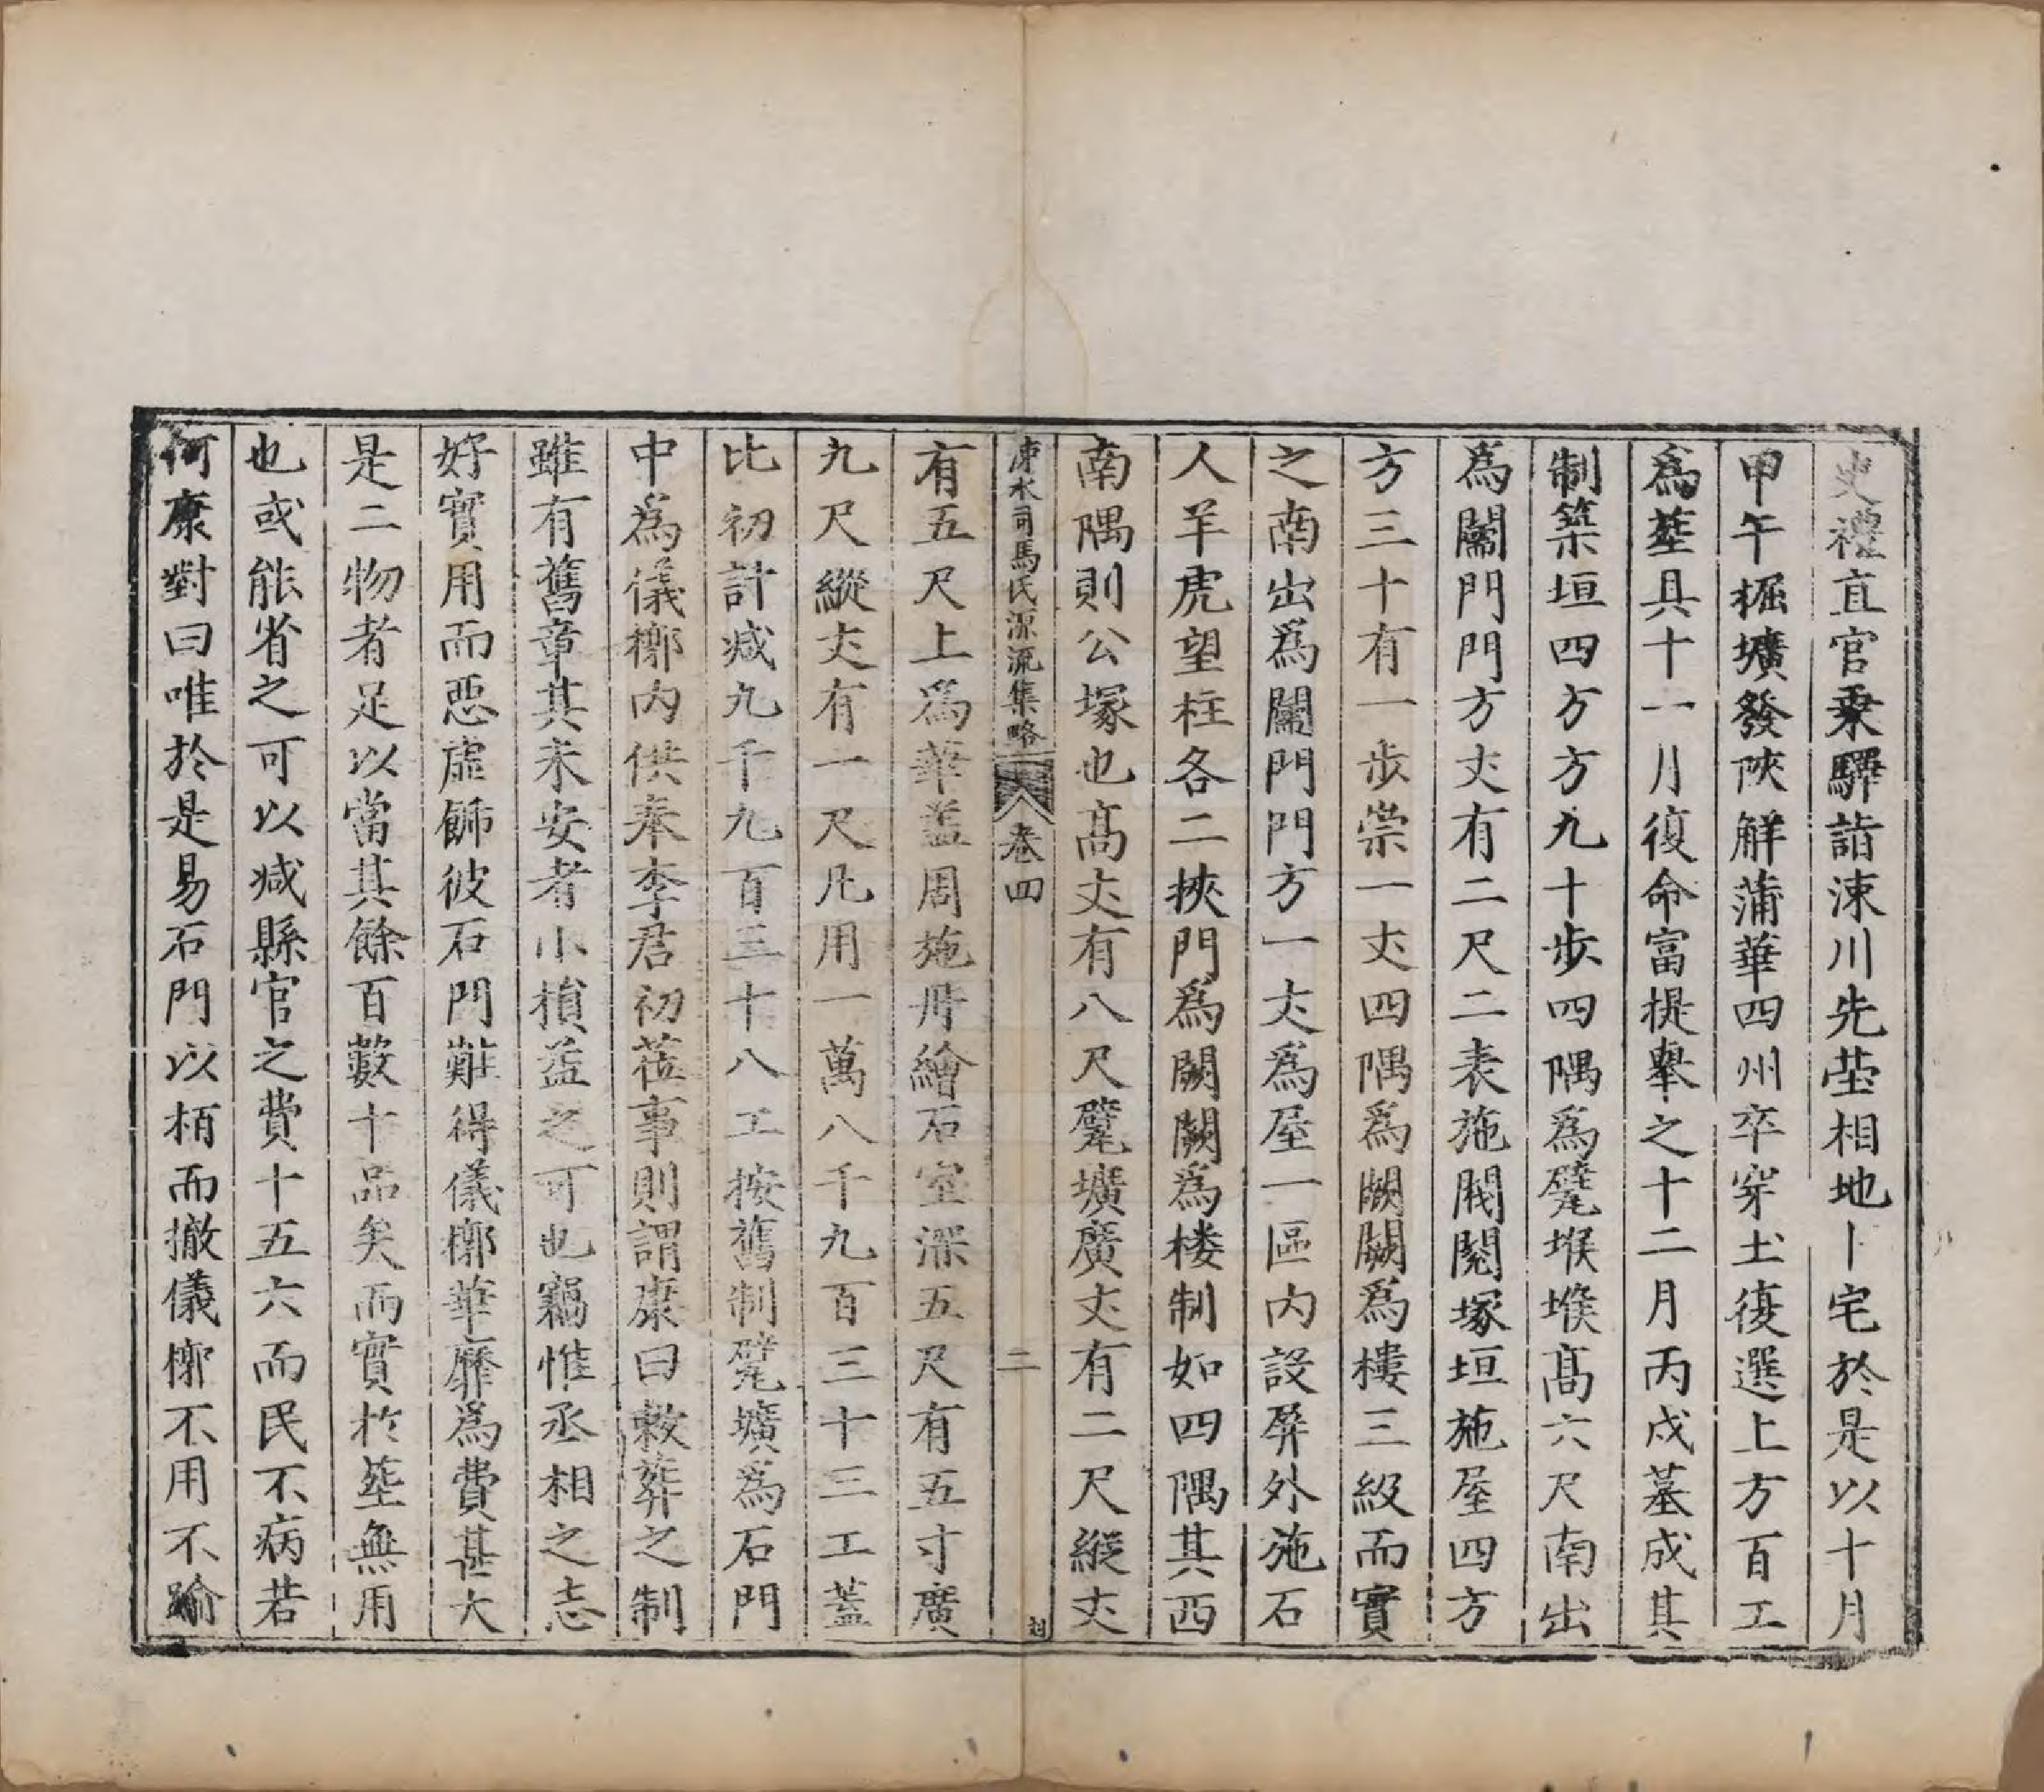 史禮直官乗驛詣涑川先塋相地卜宅於是以十月
甲午掘壙發陜解蒲華四州卒穿土復選上方百工
爲塟具十一月復命富提舉之十二月丙戌墓成其
制築垣四方方九十歩四隅爲甓堠堠髙六尺南出
爲闥門門方丈有二尺二表施閥閱塚垣施屋四方
方三十有一歩崇一丈四隅爲闕闕爲樓三級而實
之南出爲闥門門方一丈爲屋一區内設屏外施石
人羊虎望柱各二挾門爲闕闕爲楼制如四隅其西
南隅則公塚也髙丈有八尺甓壙廣丈有二尺縱丈
涑水司馬氏源流集略 卷四 二
有五尺上爲華盖周施丹繪石室深五尺有五寸廣
九尺縱丈有一尺凡用一萬八千九百三十三工蓋
比初計减九千九百三十八工按舊制甓壙爲石門
中爲儀槨内供奉李君初蒞事則謂康曰敕葬之制
雖有舊章其未安者小損益之可也竊惟丞相之志
好實用而惡虛飾彼石門難得儀槨華靡爲費甚大
是二物者足以當其餘百數十品矣而實於塟無用
也或能省之可以减縣官之費十五六而民不病若
何康對曰唯於是易石門以栢而撤儀槨不用不踰